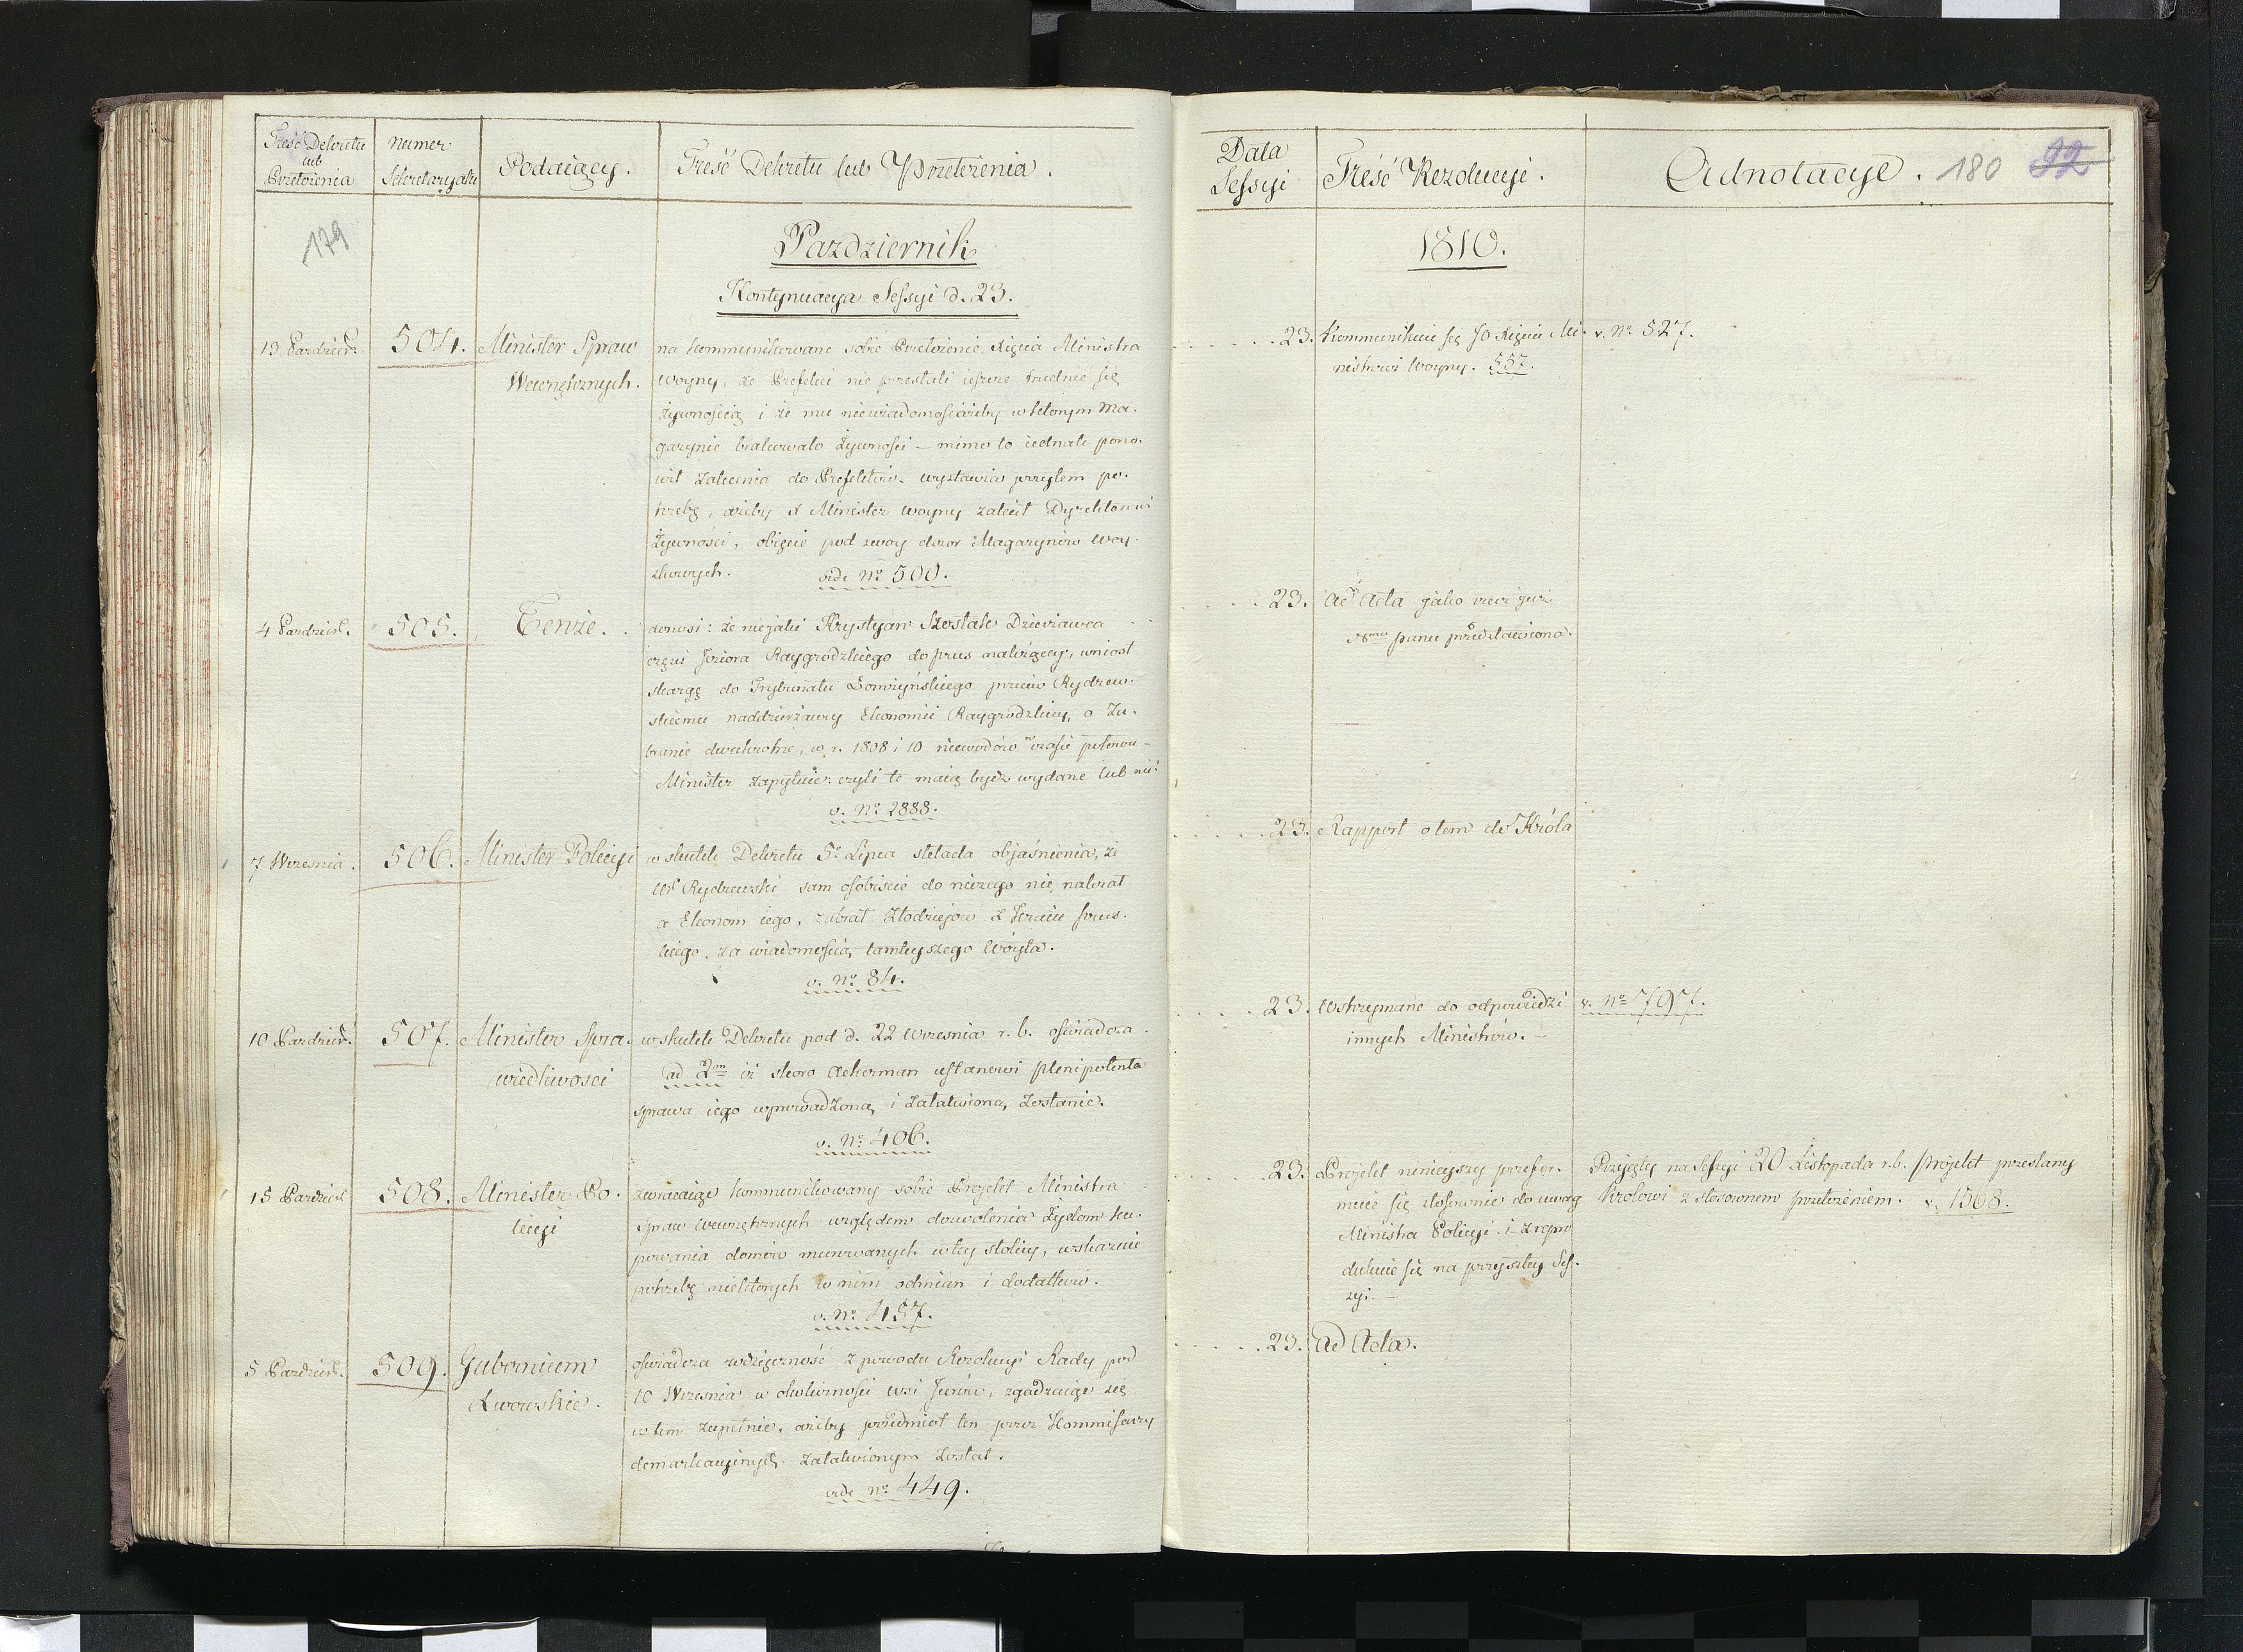 Treść Dekretu
lub
Przełożenia
Numer
Sekretaryatu
Podaiący.
Treść Dekretu lub Przełożenia.
179
Pazdziernik
Kontynuacya Sessyi d. 23.
13 Pazdzier:
504.
Minister Spraw
Wewnętrznych.
na kommunikowane sobie Przełożenie Xięcia Ministra
Woyny, że Prefekci nie przestali ieszcze trudnić się
żywnością i że mu niewiadomo ażeby w ktorym Ma-
gazynie brakowało żywności – mimo to iednak pono-
wił zalecenia do Prefektów. wystawia przytem po-
trzebę, ażeby X Minister Woyny zalecił Dyrektorowi
Żywności, obięcie pod swoy dozor Magazynów Woy-
skowych.
vide No 500.
4 Pazdzier.
505.
Tenże.
donosi: że nieiaki Krystyan Szostak Dzierżawca
części Jeziora Raygrodzkiego do prus należącey, wniosł
skargę do Trybunału Łomżyńskiego przeciw Rydzew-
skiemu naddzierżawcy Ekonomii Raygrodzkiey, o Za-
branie dwukrotne, w r. 1808 i 10 niewodów w czasie połowu –
Minister zapytuie: czyli te maią bydź wydane lub nie?
v. No 2888.
7 Wrzesnia.
506.
Minister Policyi
w skutek Dekretu 5o Lipca składa objaśnienia, że
Wr Rydzewski sam osobiscie do niczego nie należał
a Ekonom iego, zabrał złodziejów z Kraiu prus-
kiego, za wiadomością tamteyszego Wóyta.
v. No 84.
10 Pazdzier.
507.
Minister Spra-
wiedliwosci
w skutek Dekretu pod d. 22 Wrzesnia r. b. oswiadcza
ad 2m iż skoro Ackerman ustanowi plenipotenta
sprawa iego wprowadzoną i załatwioną zostanie.
v. No 406.
15 Pazdzier
508.
Minister Po-
licyi
zwracaiąc kommunikowany sobie Projekt Ministra
Spraw Wewnętrznych względem dozwolenia Żydom ku-
powania domów murowanych w tey stolicy, wskazuie
potrzebę niektorych w nim odmian i dodatków.
v. No 457.
5 Pazdzier.
509.
Gubernium
Lwowskie.
oswiadcza wdzięczność z powodu Rezolucyi Rady pod
10 Wrzesnia w okoliczności wsi Jurów, zgadzaiąc się
w tem zupełnie, ażeby przedmiot ten przez Kommissarzy
demarkacyinych załatwionym został.
vide No 449.
Data
Sessyi
Treść Rezolucyi.
Adnotacye.
180
92
1810.
23.
Kommunikuie się JO Xięciu Mi-
nistrowi Woyny. 557.
v. No 527.
23.
Ad Acta jako rzecz już
Nmu panu przedstawiona.
23.
Rapport o tem do Króla
23.
Wstrzymane do odpowiedzi
innych Ministrów. –
v. No 797.
23.
Projekt ninieyszy przefor-
muie się stosownie do uwag
Ministra Policyi i zrepro
dukuie się na przyszłey Ses-
syi. –
Przyięty na Sessyi 20 Listopada r.b. projekt przesłany
Krolowi z stosownem przełożeniem. v. 1568.
23.
Ad Acta.